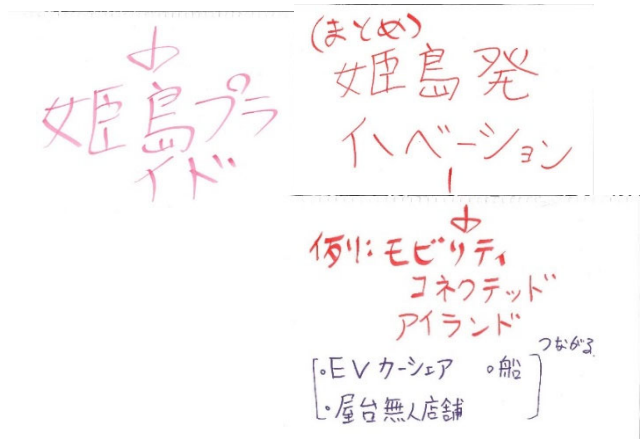 姫島プラ
イド
(まとめ)
姫島発
イハベーション
例: モビリティ
コネクテッド
アイランド
・EVカーシェア ・船
つながる
・屋台無人店舗